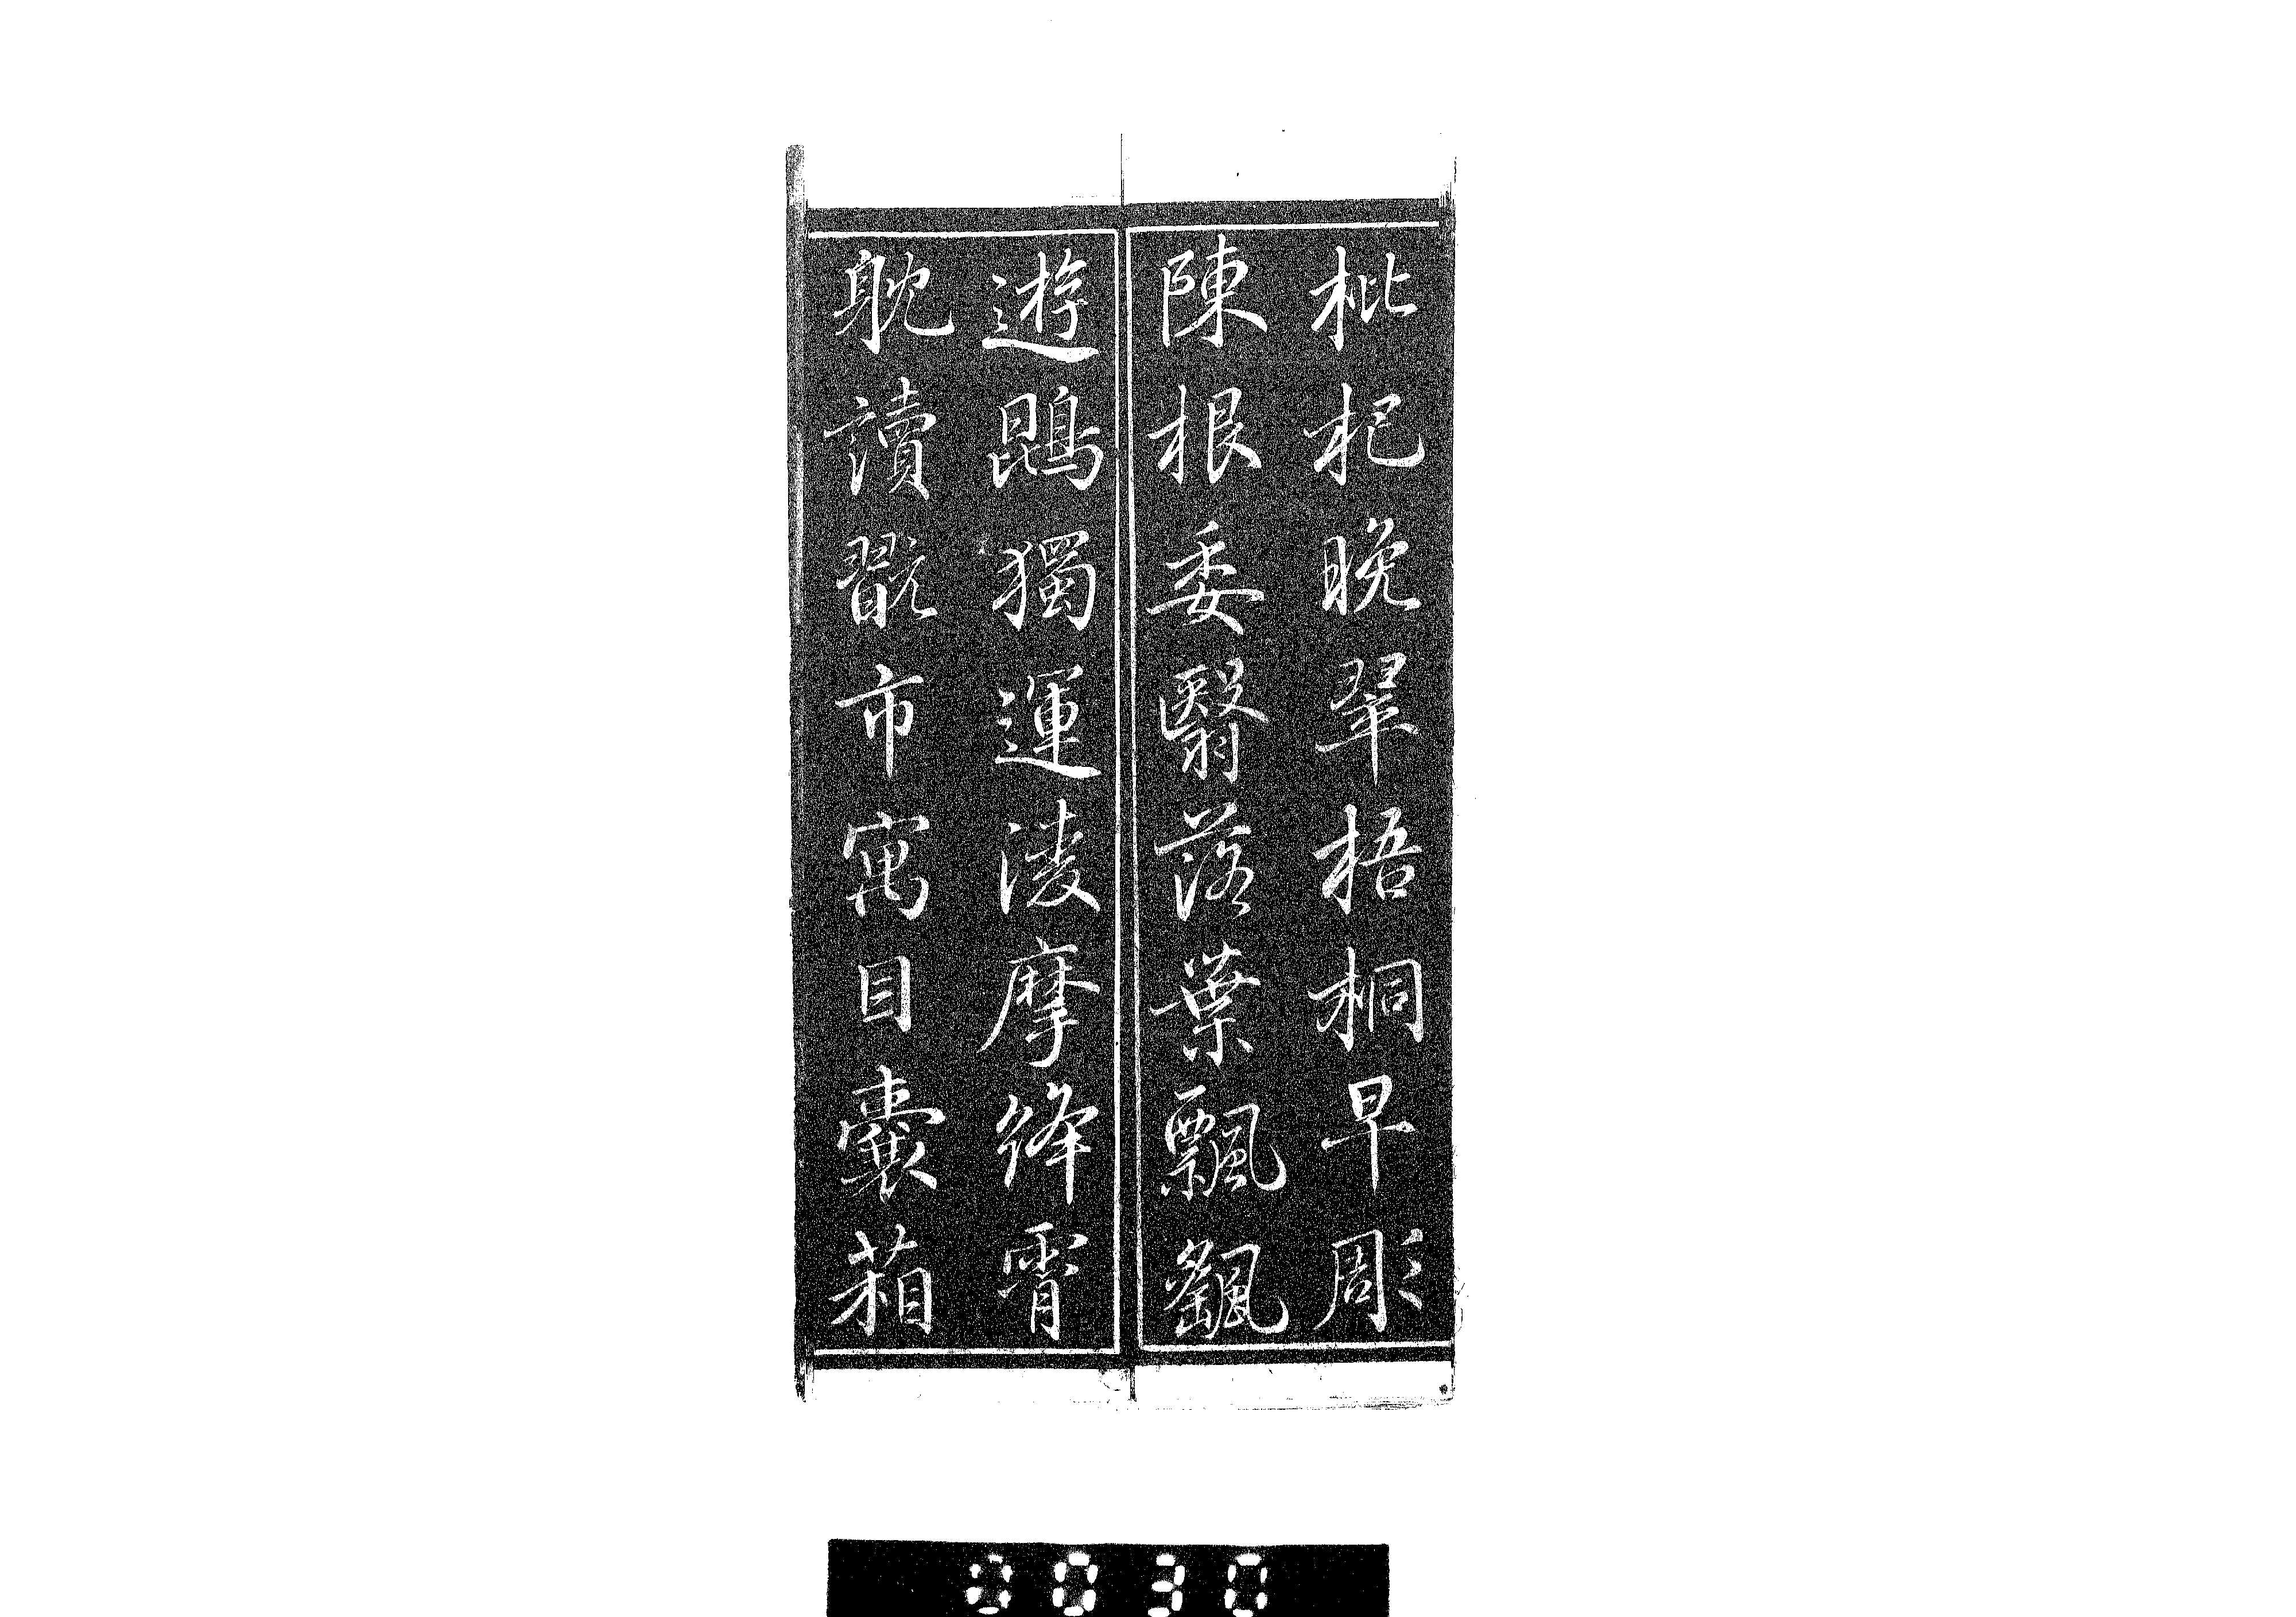 枇杷晚翠梧桐早彫
陳根委翳落葉飄颻
遊鵾獨運淩摩絳霄
躭讀翫市寓目囊葙
0030